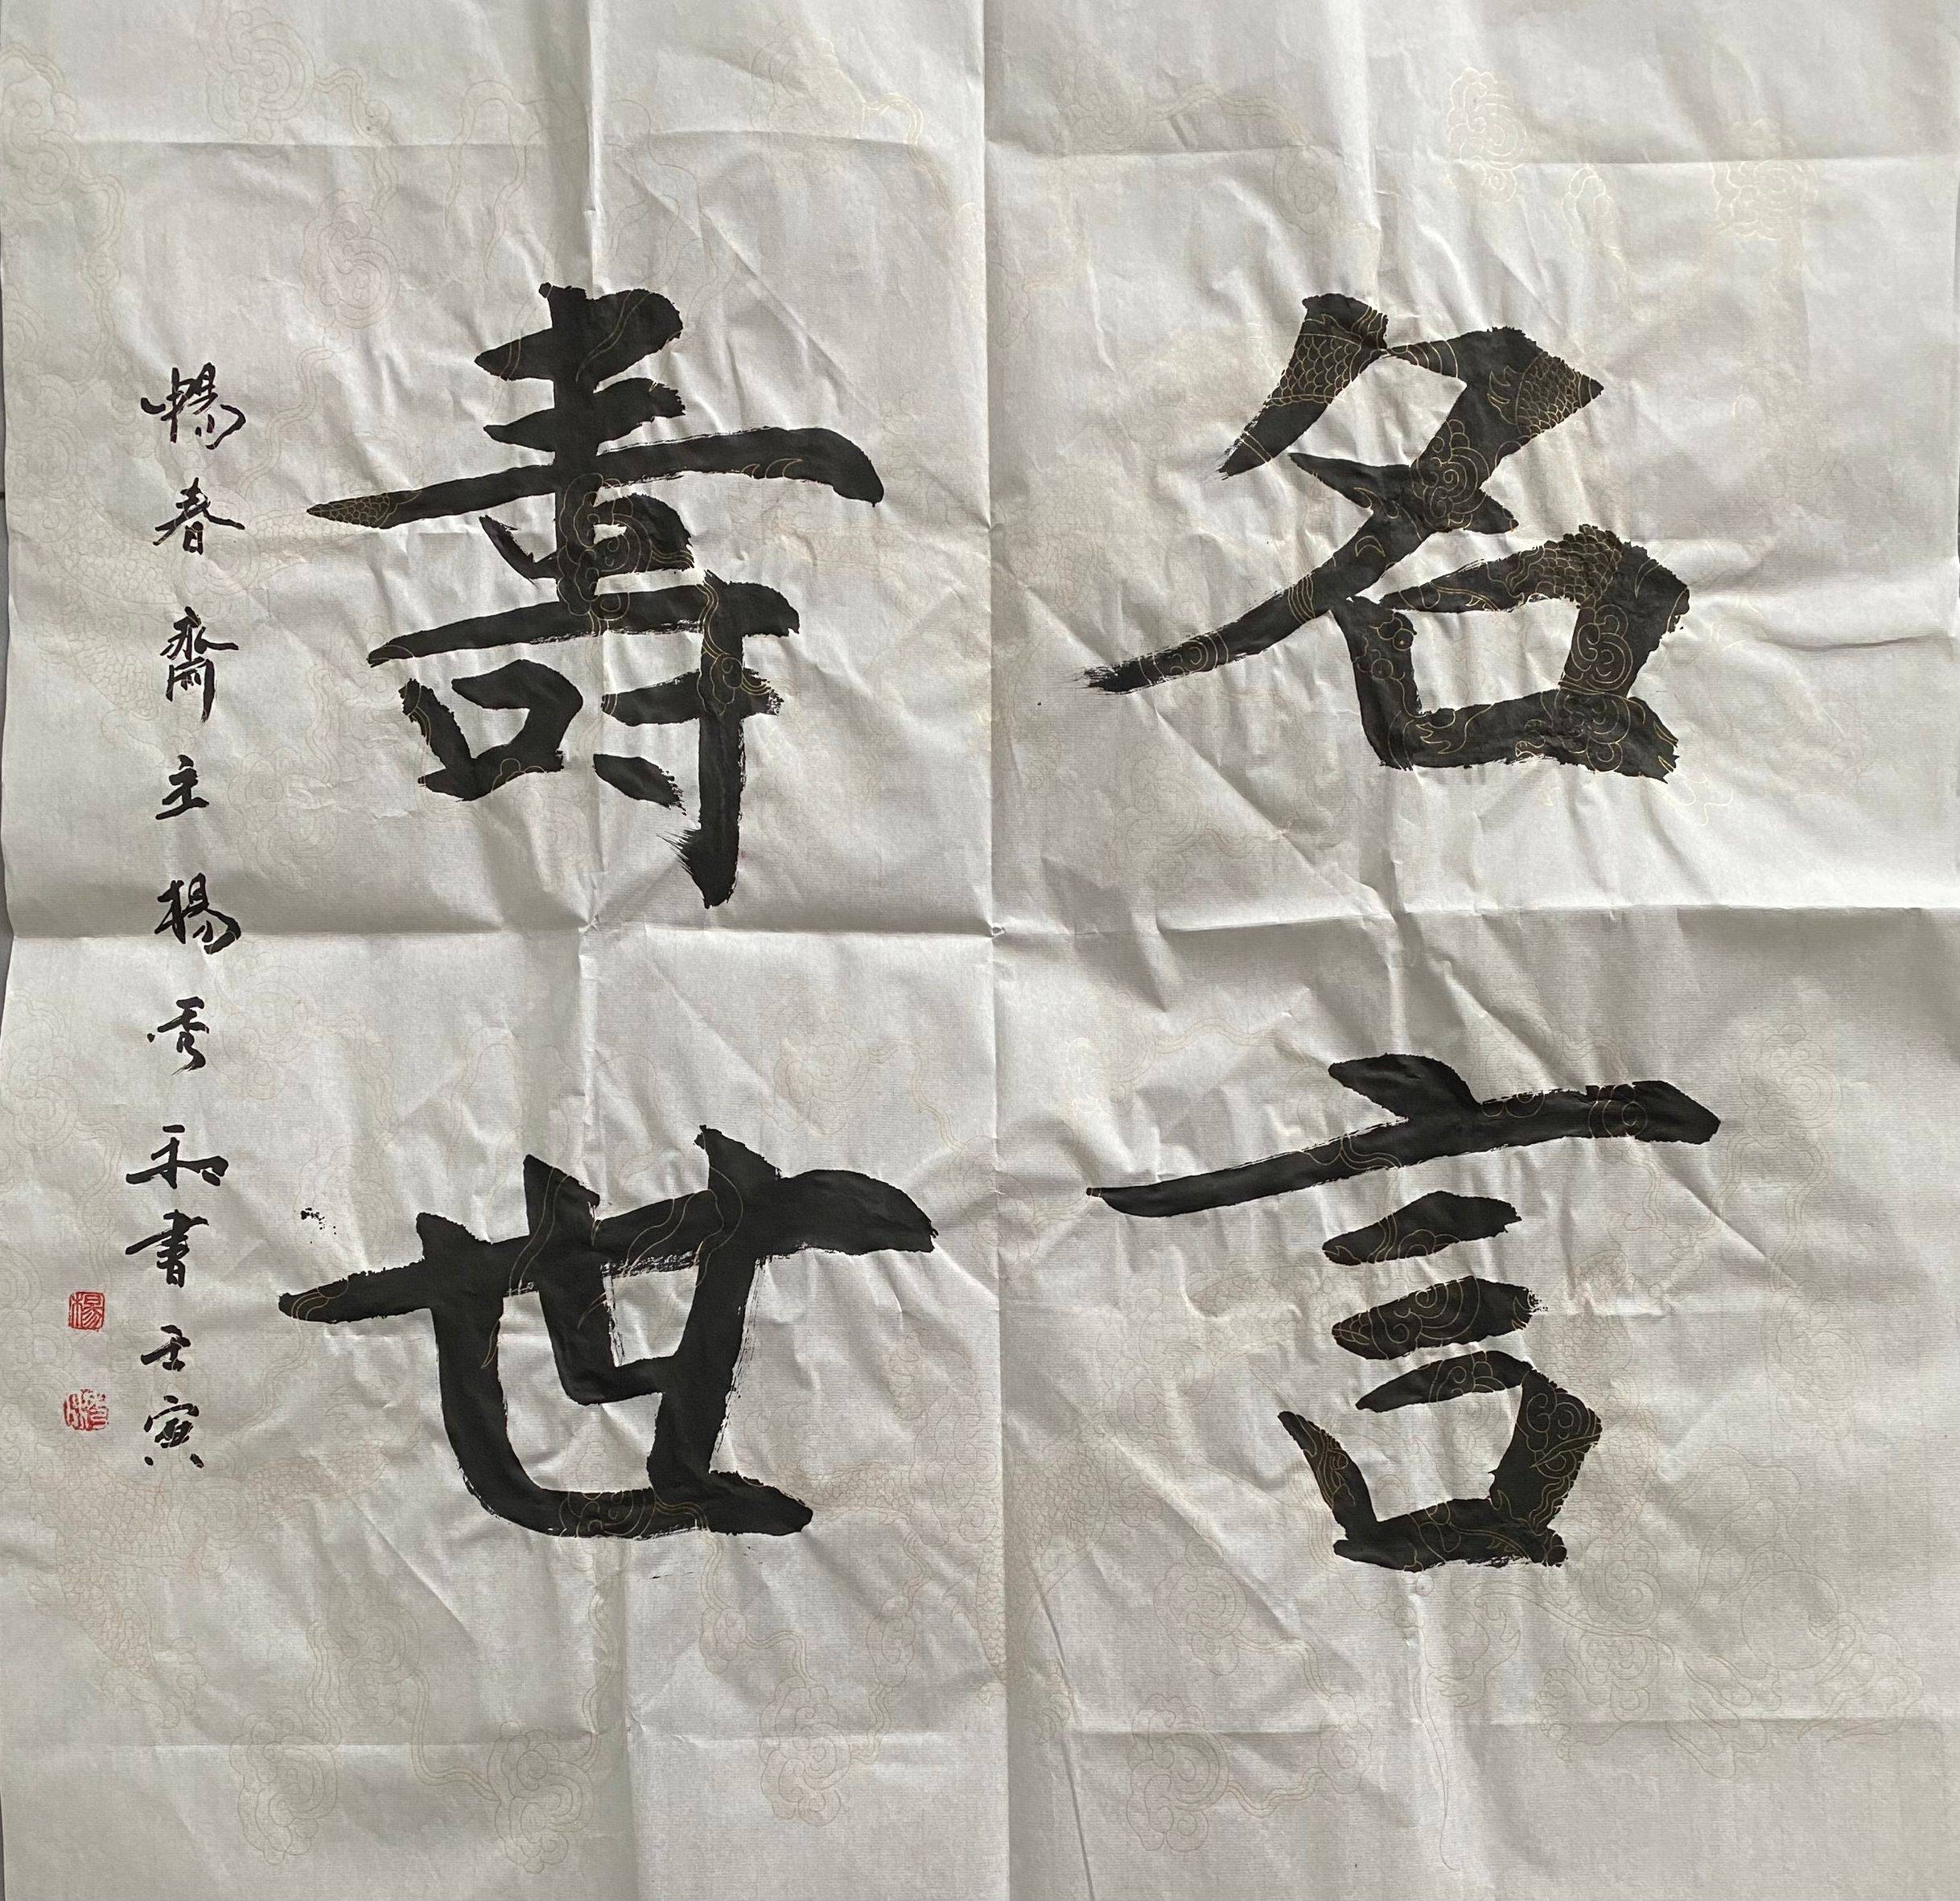 名言
壽世
暢春齋主楊秀和書壬寅
楊